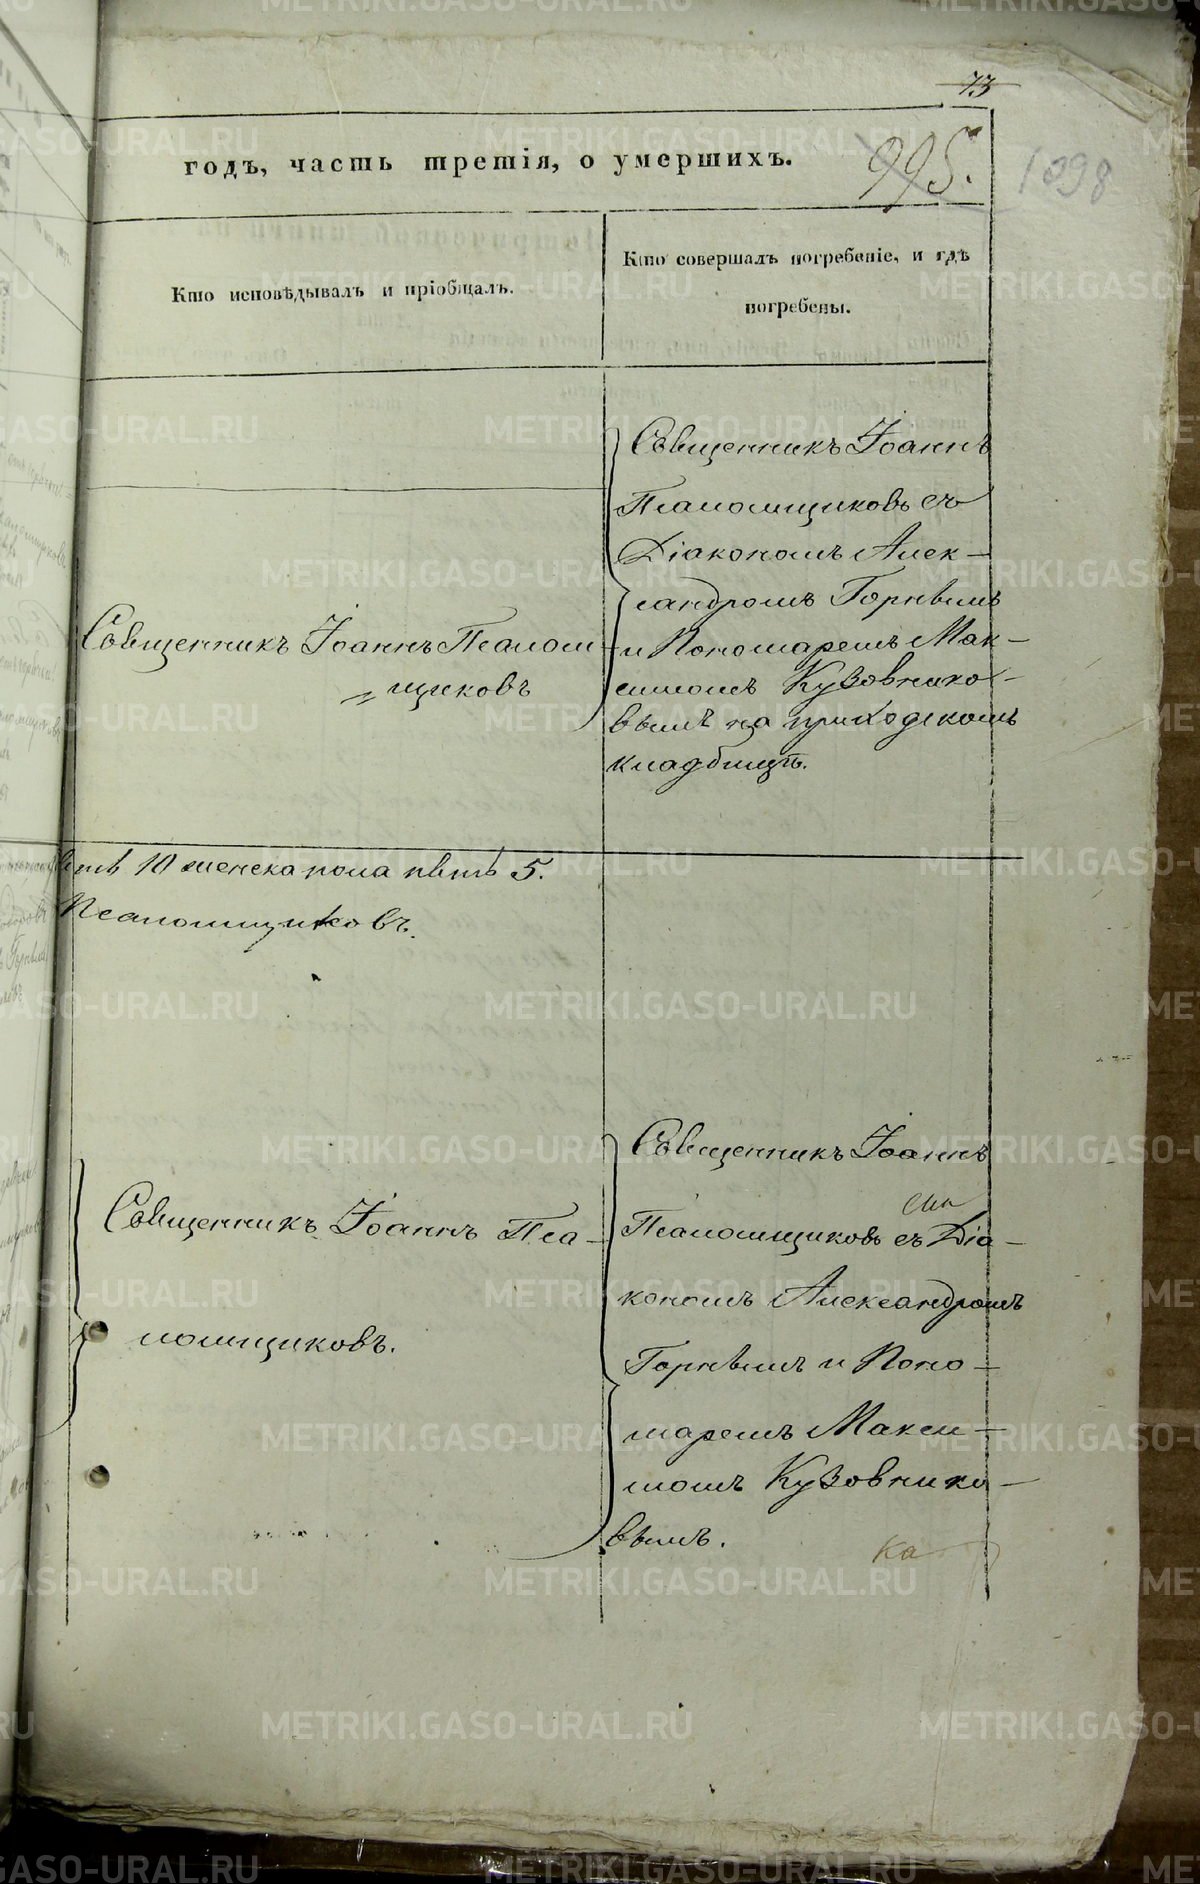 73
годъ, часть третія, о умершихъ.
995.
1098
Кто исповѣдывалъ и пріобщалъ.
Кто совершалъ погребеніе, и гдѣ
погребены.
Священникъ Іоаннъ
Псаломщиковъ съ
Діакономъ Алек-
сандромъ Горнымъ
и Пономаремъ Мак-
симомъ Кузовнико-
вымъ на приходскомъ
кладбищѣ.
Священникъ Іоаннъ Псалом-
щиковъ
10 женска пола пять 5.
Псаломщиковъ.
Священникъ Іоаннъ Пса-
ломщиковъ.
Священникъ Іоаннъ
Псаломщиковъ съ Діа-
кономъ Александромъ
Горнымъ и Поно-
маремъ Макси-
момъ Кузовнико-
вымъ.
ка
METRIKI.GASO-URAL.RU